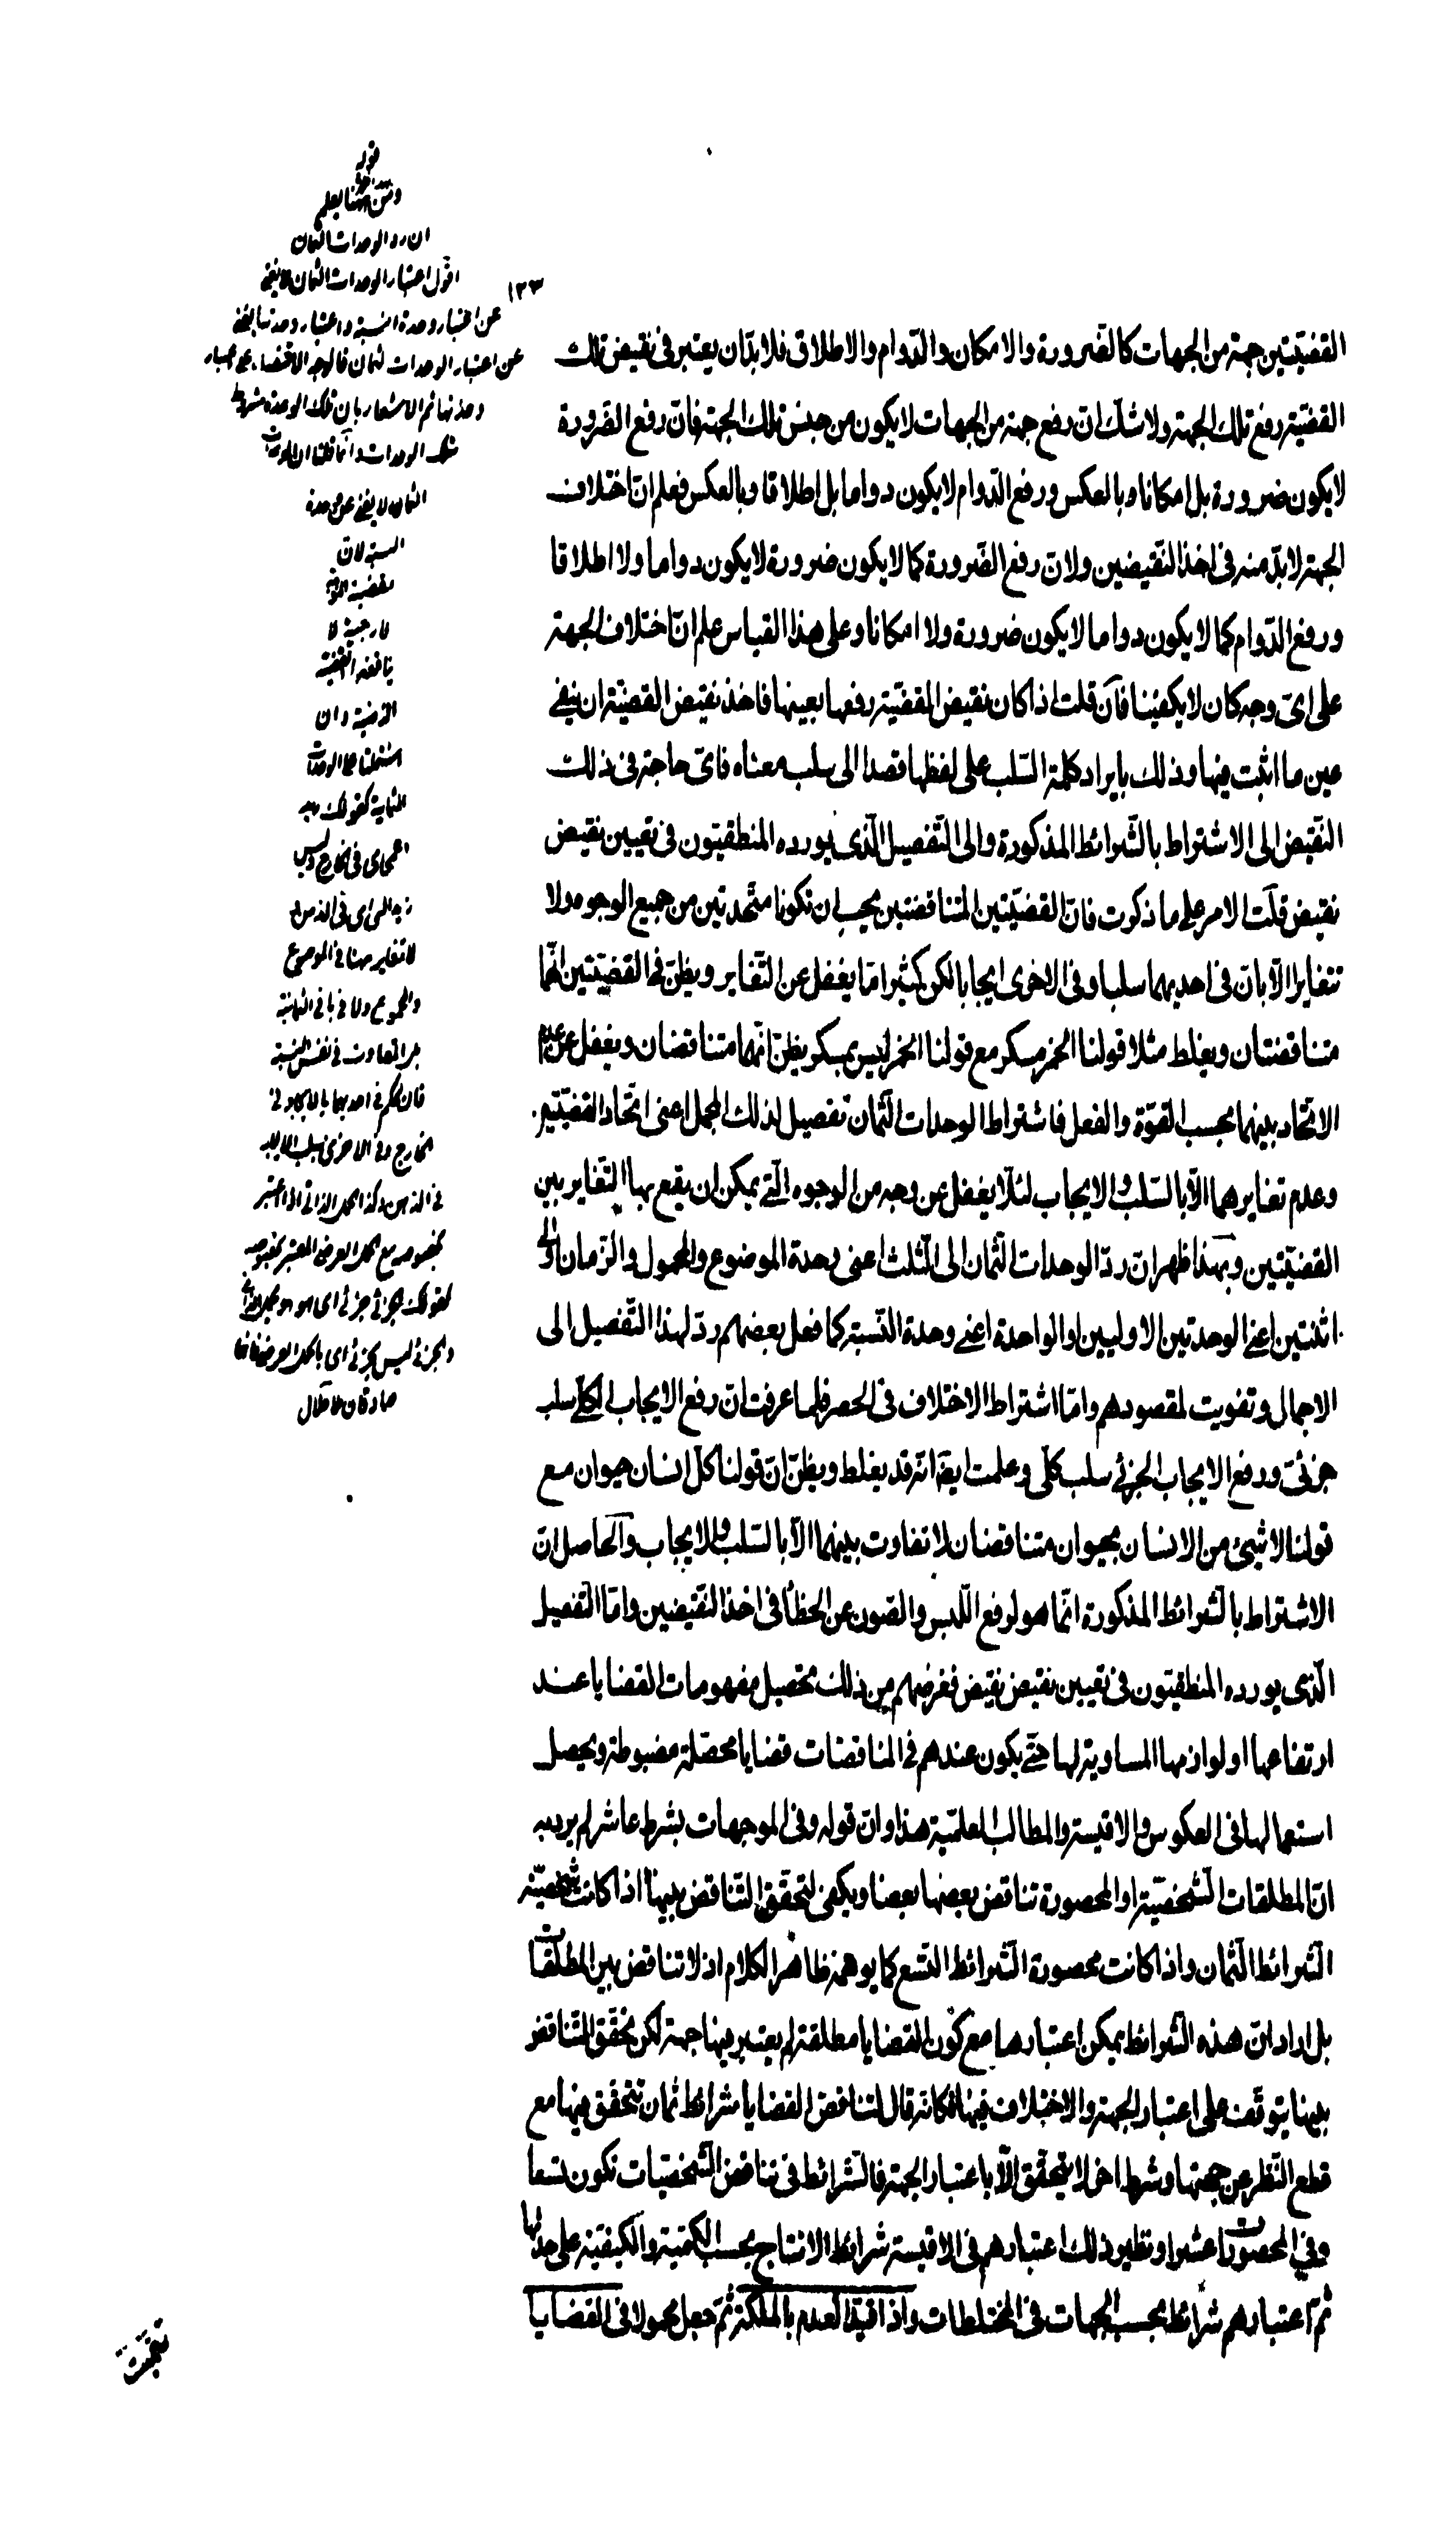 ١٣٣
القضيتين جهة من الجهات كالضرورة والامكان والدوام والاطلاق فلا بد ان يعتبر فى نقيض تلك
القضية رفع تلك الجهة ولا شك ان رفع جهة من الجهات لا يكون من جنس تلك الجهة فان رفع الضرورة
لا يكون ضرورة بل امكانا وبالعكس ورفع الدوام لا يكون دواما بل اطلاقا وبالعكس فعلم ان اختلاف
الجهة لا بد منه فى اخذ النقيضين ولان رفع الضرورة كما لا يكون ضرورة لا يكون دواما ولا اطلاقا
ورفع الدوام كما لا يكون دواما لا يكون ضرورة ولا امكانا وعلى هذا القياس علم ان اختلاف الجهة
على اى وجه كان لا يكفينا فان قلت اذا كان نقيض القضية رفعها بعينها فاخذ نقيض القضية ان ينفى
عين ما اثبت فيها وذلك بايراد كلمة السلب على لفظها قصدا الى سلب معناه فاى حاجة فى ذلك
النقيض الى الاشتراط بالشرائط المذكورة والى التفصيل الذى يورده المنطقيون فى تعيين نقيض
نقيض قلت الامر على ما ذكرت فان القضيتين المتناقضتين يجب ان تكونا متحدتين من جميع الوجوه ولا
تتغايرا الا بان فى احديهما سلبا وفى الاخرى ايجابا لكن كثيرا ما يغفل عن التغاير ويظن فى القضيتين انهما
متناقضتان ويغلط مثلا قولنا الخمر مسكر مع قولنا الخمر ليس بمسكر يظن انهما متناقضان ويغفل عن عدم
الاتحاد بينهما بحسب القوة والفعل فاشتراط الوحدات الثمان تفصيل لذلك المجمل اعنى اتحاد القضيتين
وعدم تغايرهما الا بالسلب والايجاب لئلا يغفل عن وجه من الوجوه التى يمكن ان يقع بها التغاير بين
القضيتين وبهذا ظهر ان رد الوحدات الثمان الى الثلث اعنى وحدة الموضوع والمحمول والزمان او الى
اثنتين اعنى الوحدتين الاوليين او الواحدة اعنى وحدة النسبة كما فعل بعضهم رد لهذا التفصيل الى
الاجمال وتفويت لمقصودهم واما اشتراط الاختلاف فى الحصر فلما عرفت ان رفع الايجاب الكلى سلب
جزئى ورفع الايجاب الجزئى سلب كلى وعلمت ايضا انه قد يغلط ويظن ان قولنا كل انسان حيوان مع
قولنا لا شيئ من الانسان بحيوان متناقضان لا تفاوت بينهما الا بالسلب والايجاب والحاصل ان
الاشتراط بالشرائط المذكورة انما هو لرفع اللبس والصون عن الخطأ فى اخذ النقيضين واما التفصيل
الذى يورده المنطقيون فى تعيين نقيض نقيض فغرضهم من ذلك تحصيل مفهومات القضايا عند
ارتفاعها او لوازمها المساوية لها حتى يكون عندهم فى المناقضات قضايا محصلة مضبوطة ويحصل
استعمالها فى العكوس والاقيسة والمطالب العلمية هذا وان قوله وفى الموجهات بشرط عاشر لم يرد به
ان المطلقات الشخصية او المحصورة تناقض بعضها بعضا ويكفى لتحقق التناقض بينها اذا كانت شخصية
الشرائط الثمان واذا كانت محصورة الشرائط التسع كما يوهمه ظاهر الكلام اذ لا تناقض بين المطلقات
بل اراد ان هذه الشرائط يمكن اعتبارها مع كون القضايا مطلقة لم يعتبر فيها جهة لكن تحقق التناقض
بينها يتوقف على اعتبار الجهة والاختلاف فيها فكانه قال لتناقض القضايا شرائط ثمان تتحقق فيها مع
قطع النظر عن جهتها وشرط اخر لا يتحقق الا باعتبار الجهة فالشرائط فى تناقض الشخصيات تكون تسعا
وفى المحصورات عشرا ونظير ذلك اعتبارهم فى الاقيسة شرائط الانتاج بحسب الكمية والكيفية على حدتها
ثم اعتبارهم شرائط بحسب الجهات فى المختلطات واذا قيد العدم بالملكة ثم جعل محمولا فى القضايا
قوله
ومن ههنا يعلم
ان رد الوحدات الثمان
اقول اعتبار الوحدات الثمان لا يغنى
عن اعتبار وحدة النسبة واعتبار وحدتها يغنى
عن اعتبار الوحدات الثمان فالوجه الاقتصار على اعتبار
وحدتها ثم الاشعار بان تلك الوحدة مشروطة
بتلك الوحدات وانما قلنا ان الوحدات
الثمان لا يغنى عن وحدة
النسبة لان
القضية
الخارجية لا
يناقضه القضية
الذهنية وان
اشتملتا على الوحدات
الثمانية كقولك زيد
اعمى اى فى الخارج وليس
زيد اعمى اى فى الذهن اذ
لا تغاير ههنا فى الموضوع
والمحمول ولا فى باقى الثمانية
بل التفاوت فى نفس النسبة
فان الحكم فى احديهما بالايجاب فى
الخارج وفى الاخرى بسلب الايجاب
فى الذهن وكذا الحمل الذاتى اذا اعتبر
بخصوصه مع الحمل العرضى المعتبر بخصوصه
كقولك الجزئى جزئى اى هو هو بالحمل الذاتى
والجزئى ليس بجزئى اى بالحمل العرضى فانهما
صادقان ملا جلال